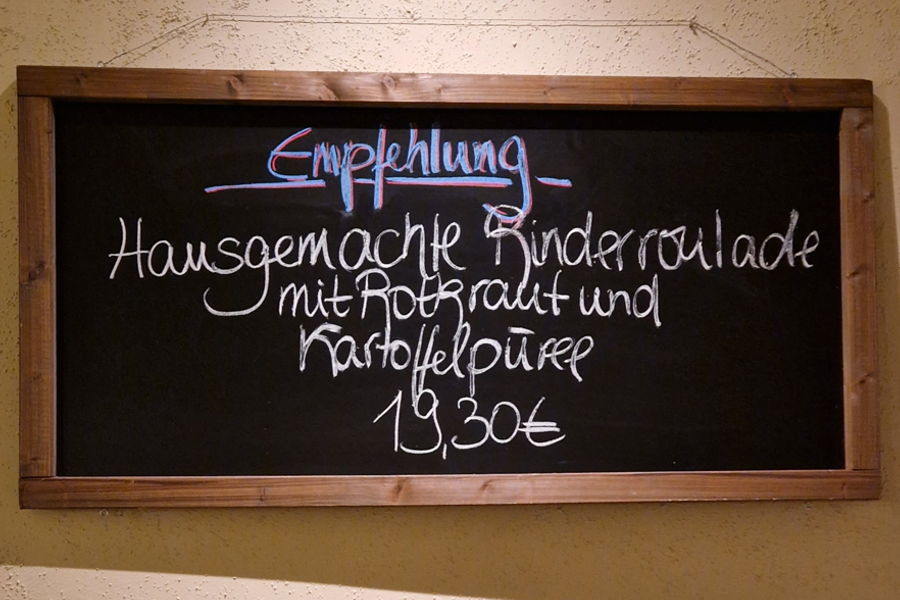 Empfehlung
Hausgemachte Rinderroulade
mit Rotkraut und
Kartoffelpüree
19,30€